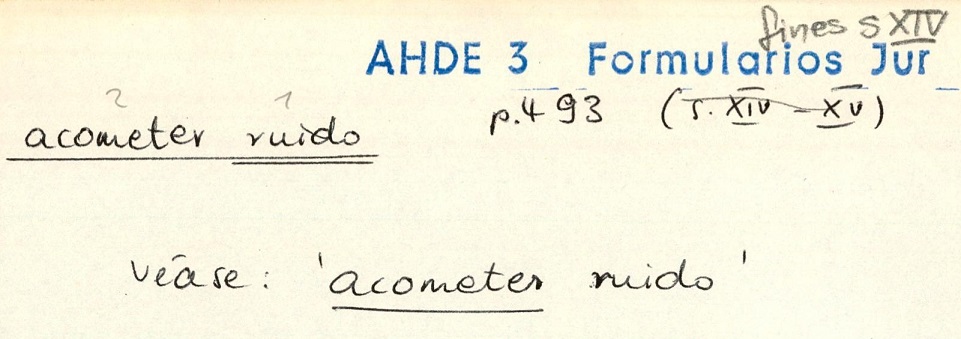 fines s XIV
AHDE 3 Formularios Jur
2 1
p.493 (s. XIV - XV)
acometer ruido
véase: 'acometer ruido'